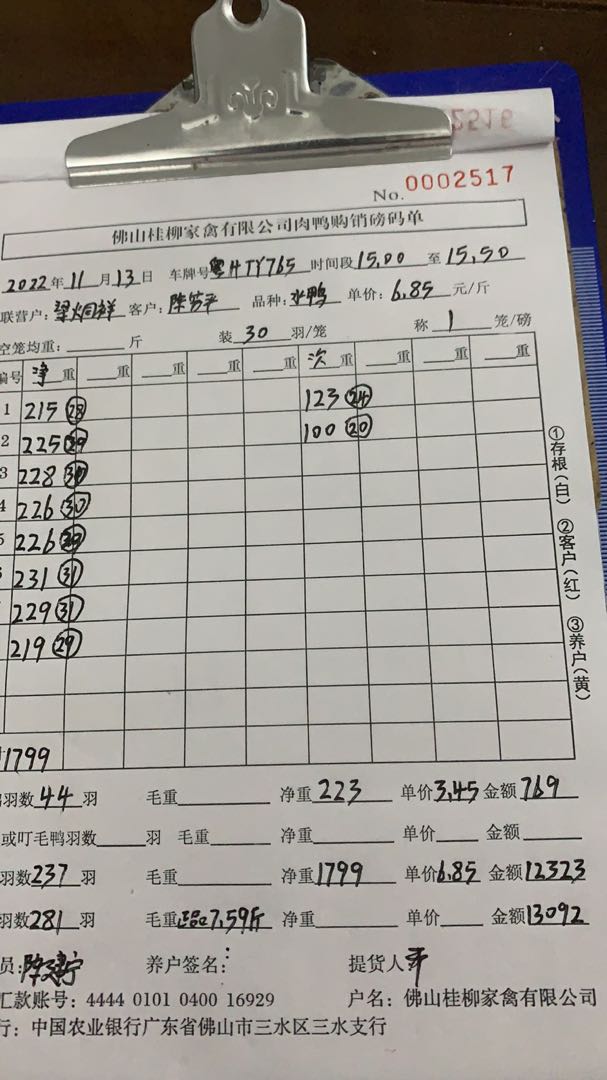 No. 0002517
佛山桂柳家禽有限公司肉鸭购销磅码单
2022年11月13日 车牌号粤HTY765 时间段15,00 至15,50
联营户: 梁炳祥 客户: 陈 品种: 水鸭 单价: 6.85 元/斤
空笼均重: 斤 装 30 羽/笼 称 1 笼/磅
编号 净重 重 重 重 重 次重 重 重 重
1 215 28 123 24
2 225 29 100 20
3 228 30
4 226 30
5 226
6 231 31
229 31
219 29
1799
羽数44羽 毛重 净重223 单价3.45 金额769
或叮毛鸭羽数 羽 毛重 净重 单价 金额
羽数237羽 毛重 净重1799 单价6.85 金额12323
羽数281羽 毛重正品7.59斤 净重 单价 金额13092
员: 养户签名: 提货人
汇款账号: 4444 0101 0400 16929 户名: 佛山桂柳家禽有限公司
行: 中国农业银行广东省佛山市三水区三水支行
①存根(白) ②客户(红) ③养户(黄)